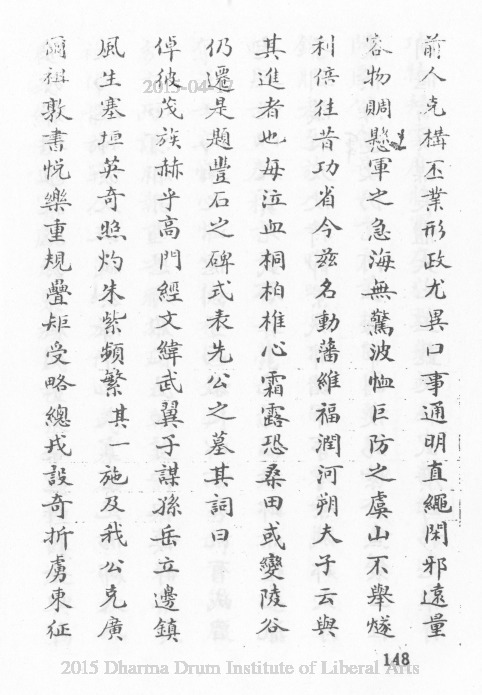 前人克構丕業形政尤異口事通明直繩閑邪遠量
容物賙懸軍之急海無驚波恤巨防之虞山不舉燧
利倍往昔功省今茲名動藩維福潤河朔夫子云與
其進者也每泣血桐柏椎心霜露恐桑田或變陵谷
仍遷是題豐石之碑式表先公之墓其詞曰
倬彼茂族赫乎高門經文緯武翼子謀孫岳立邊鎮
風生塞垣英奇照灼朱紫頻繁 其一施及我公克廣
爾祖敦書悅樂重規疊矩受略總戎設奇折虜東征
148
2015-04-12
2015 Dharma Drum Institute of Liberal Arts